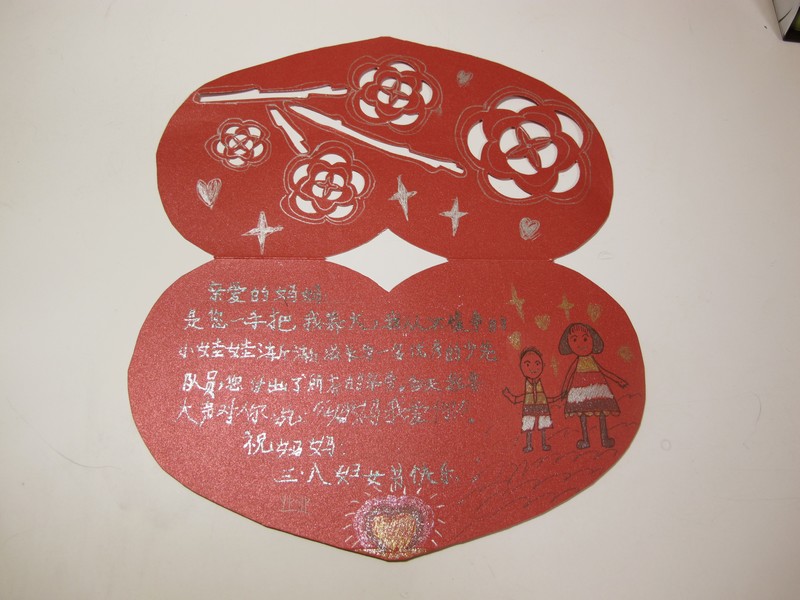 亲爱的妈妈
是您一手把我养大,我从不懂事的
小娃娃渐渐成长为一名优秀的少先
队员,您付出了所有的
大声对你说:“妈妈我爱您”。
祝妈妈
三·八妇女节快乐